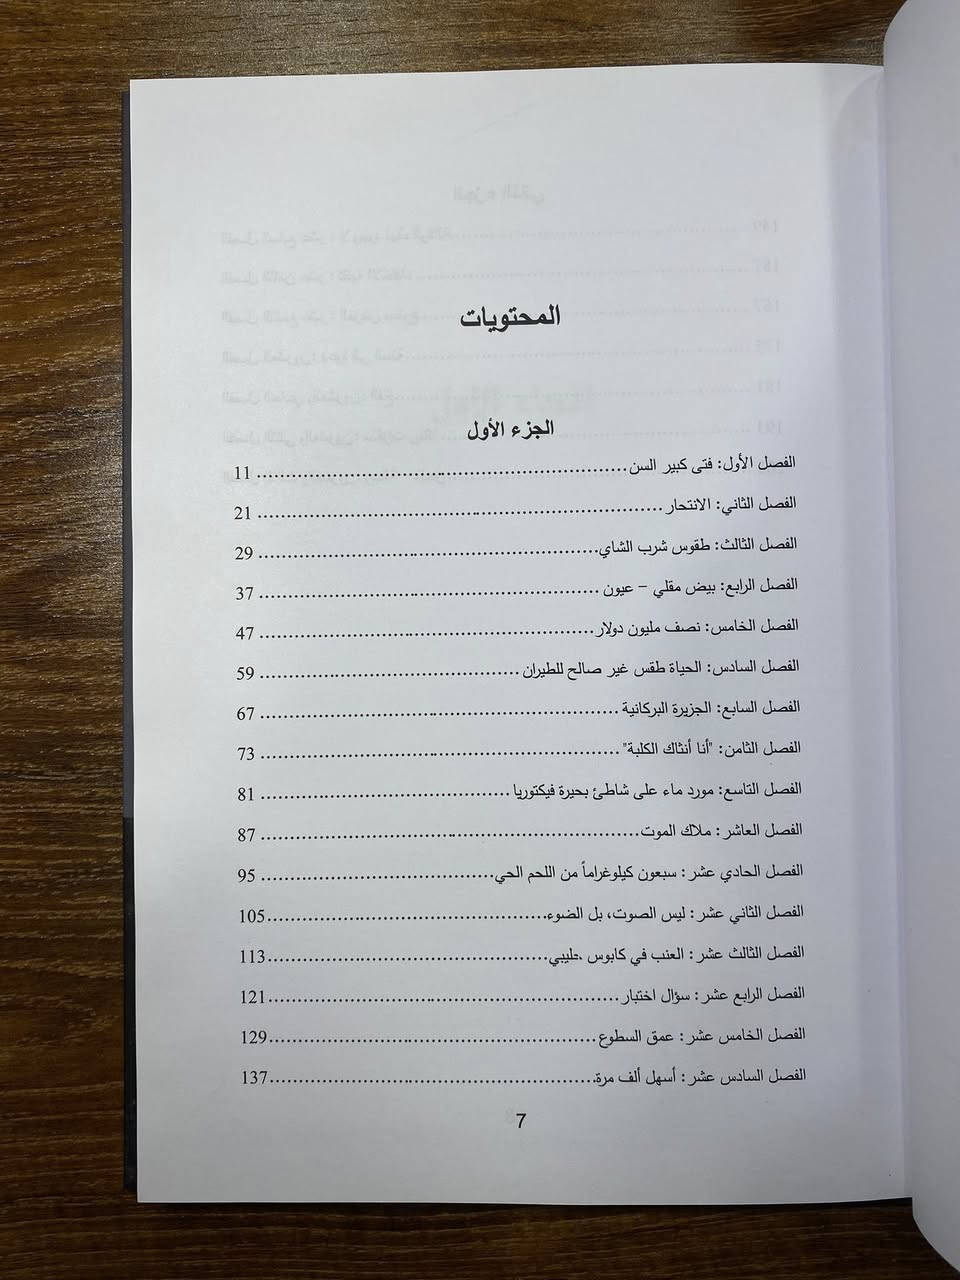 المحتويات
الجزء الأول
الفصل الأول: فتى كبير السن ........ 11
الفصل الثاني: الانتحار ........ 21
الفصل الثالث: طقوس شرب الشاي ........ 29
الفصل الرابع: بيض مقلي – عيون ........ 37
الفصل الخامس: نصف مليون دولار ........ 47
الفصل السادس: الحياة طقس غير صالح للطيران ........ 59
الفصل السابع: الجزيرة البركانية ........ 67
الفصل الثامن: "أنا أنثاك الكلبة" ........ 73
الفصل التاسع: مورد ماء على شاطئ بحيرة فيكتوريا ........ 81
الفصل العاشر: ملاك الموت ........ 87
الفصل الحادي عشر: سبعون كيلوغراماً من اللحم الحي ........ 95
الفصل الثاني عشر: ليس الصوت، بل الضوء ........ 105
الفصل الثالث عشر: العنب في كابوس ........ 113
الفصل الرابع عشر: سؤال اختبار ........ 121
الفصل الخامس عشر: عمق السطوع ........ 129
الفصل السادس عشر: أسهل ألف مرة ........ 137
7